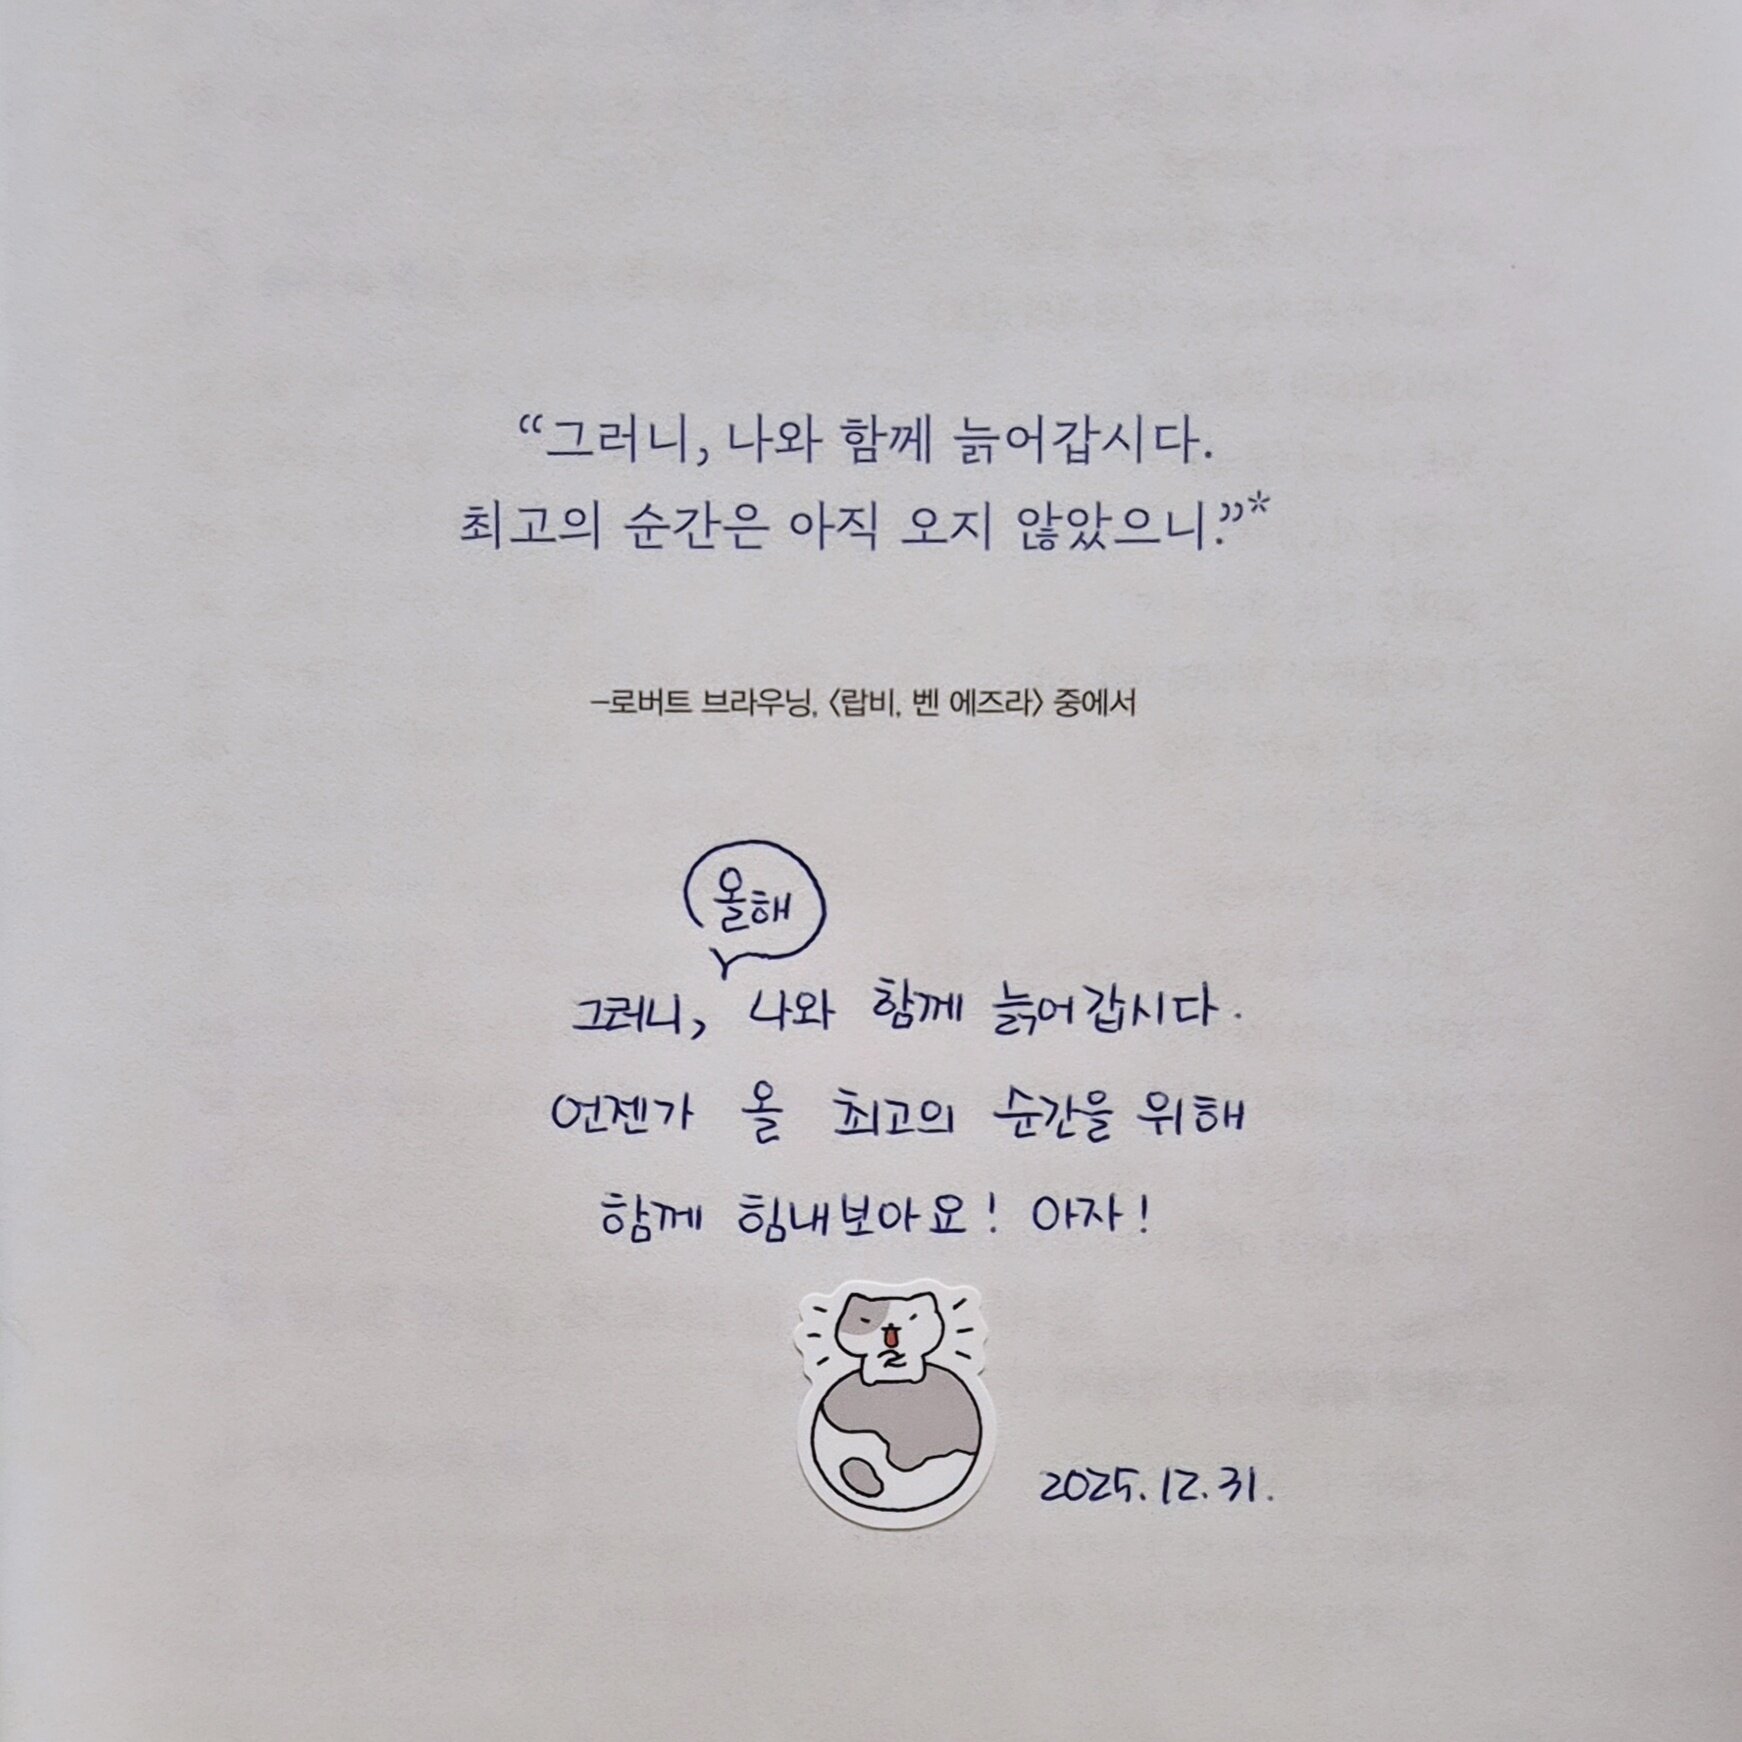 “그러니, 나와 함께 늙어갑시다.
최고의 순간은 아직 오지 않았으니.”*
–로버트 브라우닝, <랍비, 벤 에즈라> 중에서
올해
그러니, 나와 함께 늙어갑시다.
언젠가 올 최고의 순간을 위해
함께 힘내보아요! 아자!
2025.12.31.